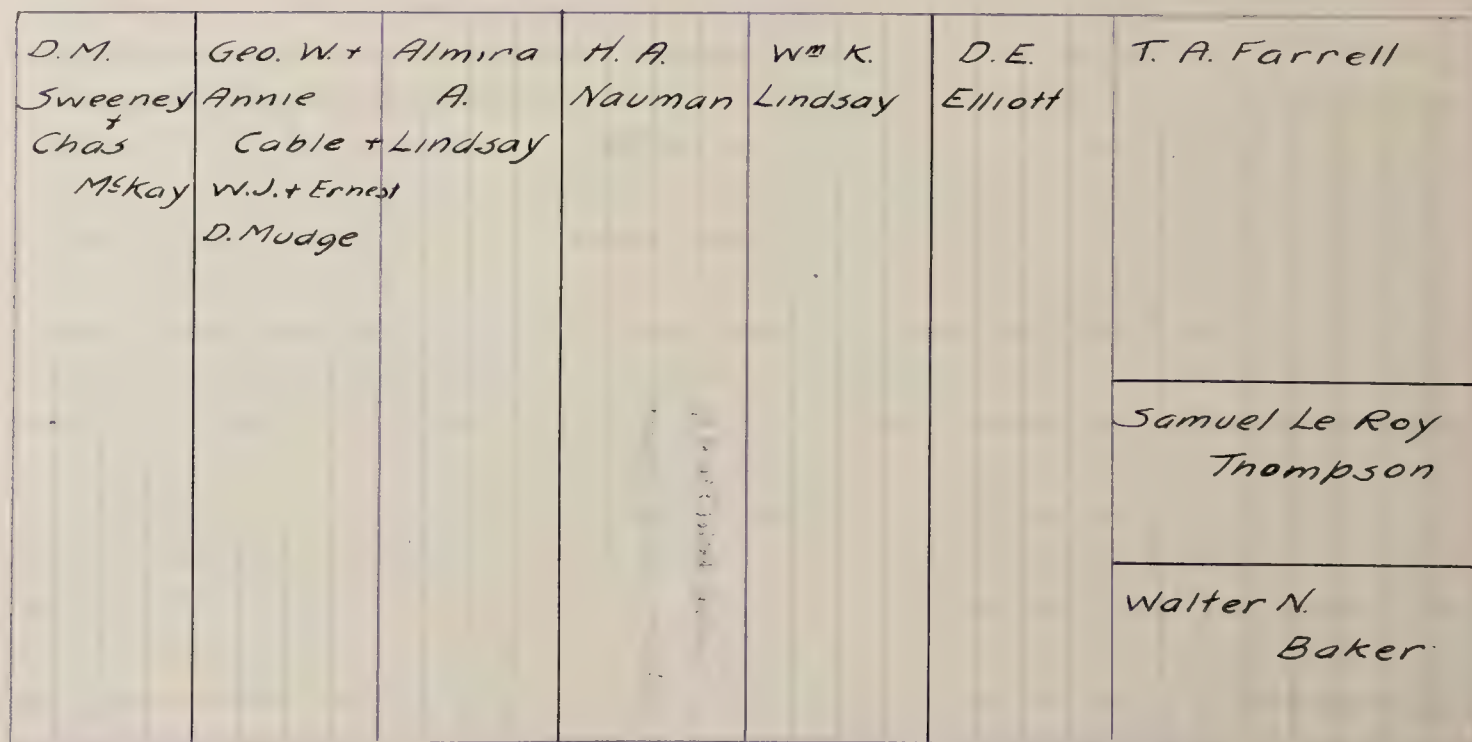 D.M.
Sweeney
+
Chas
McKay
Geo. W. +
Annie
Cable +
W.J. + Ernest
D. Mudge
Almira
A.
Lindsay
H. A.
Nauman
Wm K.
Lindsay
D. E.
Elliott
T. A. Farrell
Samuel Le Roy
Thompson
Walter N.
Baker